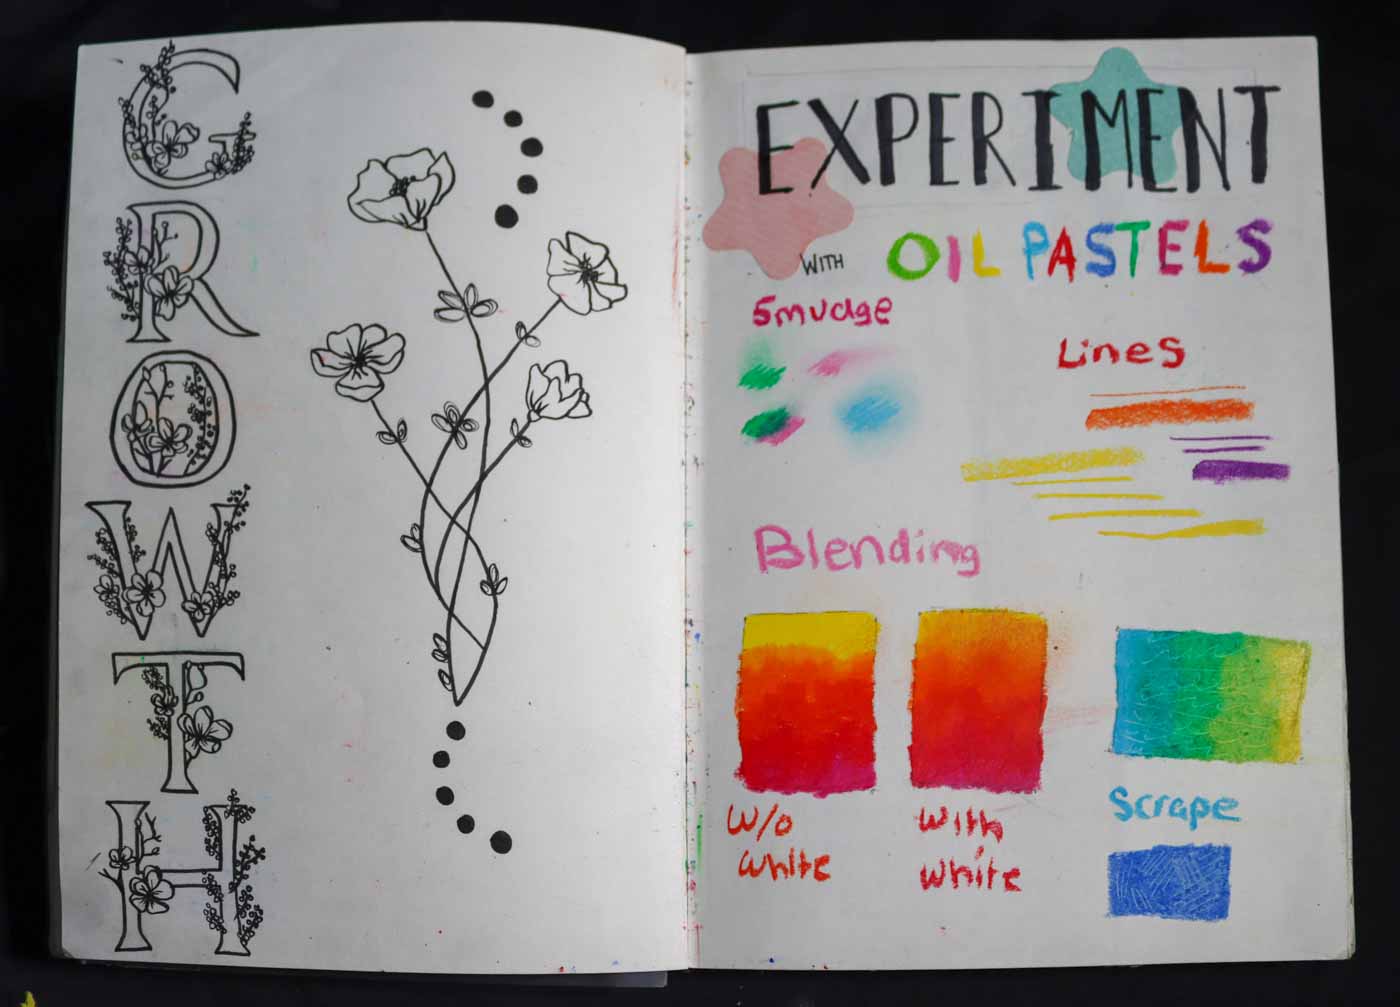 GROWTH
EXPERIMENT
WITH OIL PASTELS
Smudge
Lines
Blending
W/o
white
With
white
Scrape